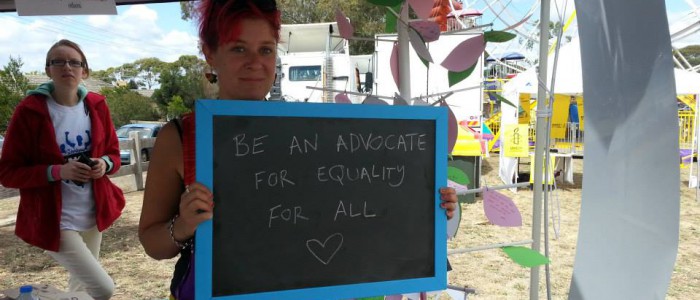 BE AN ADVOCATE
FOR EQUALITY
FOR ALL